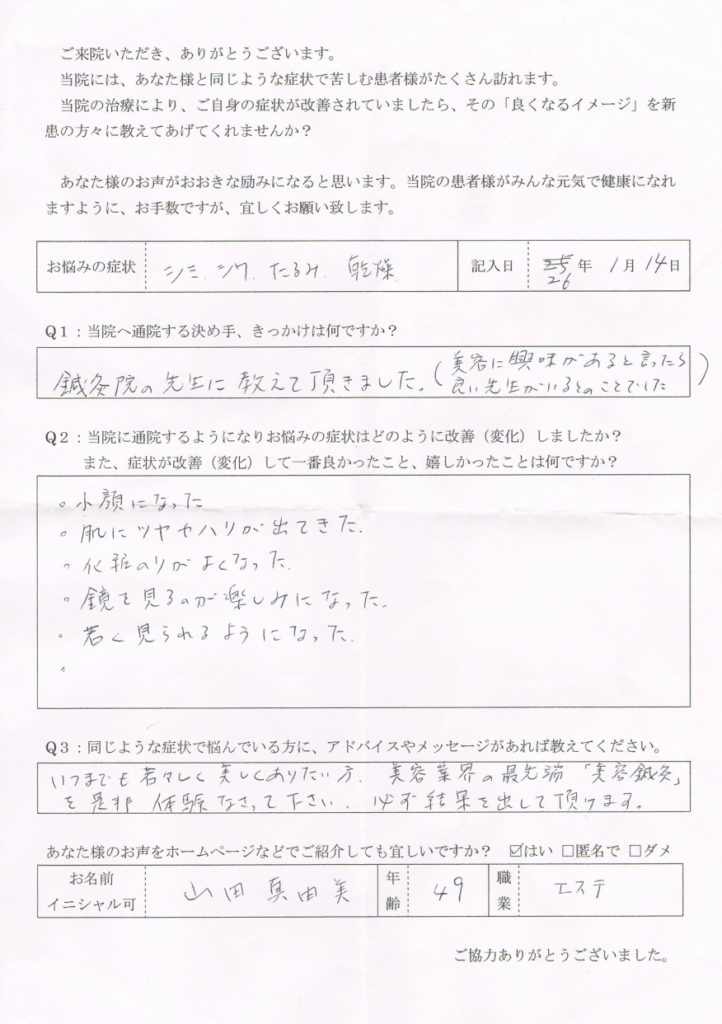 ご来院いただき、ありがとうございます。
当院には、あなた様と同じような症状で苦しむ患者様がたくさん訪れます。
当院の治療により、ご自身の症状が改善されていましたら、その「良くなるイメージ」を新
患の方々に教えてあげてくれませんか？
あなた様のお声がおおきな励みになると思います。当院の患者様がみんな元気で健康になれ
ますように、お手数ですが、宜しくお願い致します。
お悩みの症状 シミ、シワ、たるみ、乾燥 記入日 25 年 1月 14日
26
Q1：当院へ通院する決め手、きっかけは何ですか？
鍼灸院の先生に教えて頂きました。（美容に興味があると言ったら
良い先生がいるとのことでした）
Q2：当院に通院するようになりお悩みの症状はどのように改善（変化）しましたか？
また、症状が改善（変化）して一番良かったこと、嬉しかったことは何ですか？
。小顔になった
。肌にツヤやハリが出てきた。
。化粧のりがよくなった。
。鏡を見るのが楽しみになった。
。若く見られるようになった。
。
Q3：同じような症状で悩んでいる方に、アドバイスやメッセージがあれば教えてください。
いつまでも若々しく美しくありたい方、美容業界の最先端「美容鍼灸」
を是非体験なさって下さい。必ず結果を出して頂けます。
あなた様のお声をホームページなどでご紹介しても宜しいですか？ ☑はい □匿名で □ダメ
お名前
イニシャル可 山田真由美 年齢 49 職業 エステ
ご協力ありがとうございました。